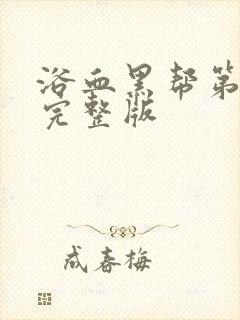 浴血黑帮第
完整版
成春梅